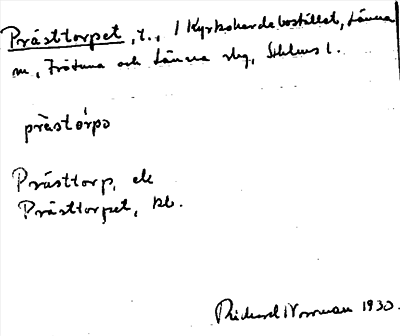 Prästtorpet, t., / Kyrkoherdebostället, Länna
sn, Frötuna och Länna slg, Sthlms l.
prästòrpə
Prästtorp, ek
Prästtorpet, kb.
Rickard Norrman 1930.